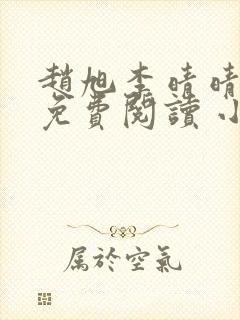 趙旭李晴晴
免費閱讀小
属於空氣